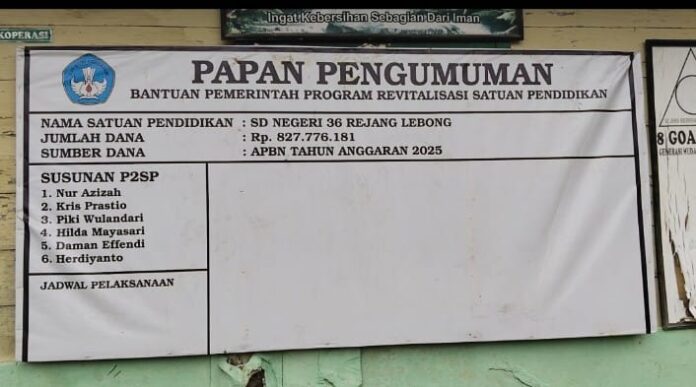 Ingat Kebersihan Sebagian Dari Iman
KOPERASI
PAPAN PENGUMUMAN
BANTUAN PEMERINTAH PROGRAM REVITALISASI SATUAN PENDIDIKAN
NAMA SATUAN PENDIDIKAN : SD NEGERI 36 REJANG LEBONG
JUMLAH DANA : Rp. 827.776.181
SUMBER DANA : APBN TAHUN ANGGARAN 2025
SUSUNAN P2SP
1. Nur Azizah
2. Kris Prastio
3. Piki Wulandari
4. Hilda Mayasari
5. Daman Effendi
6. Herdiyanto
JADWAL PELAKSANAAN
8 GOA